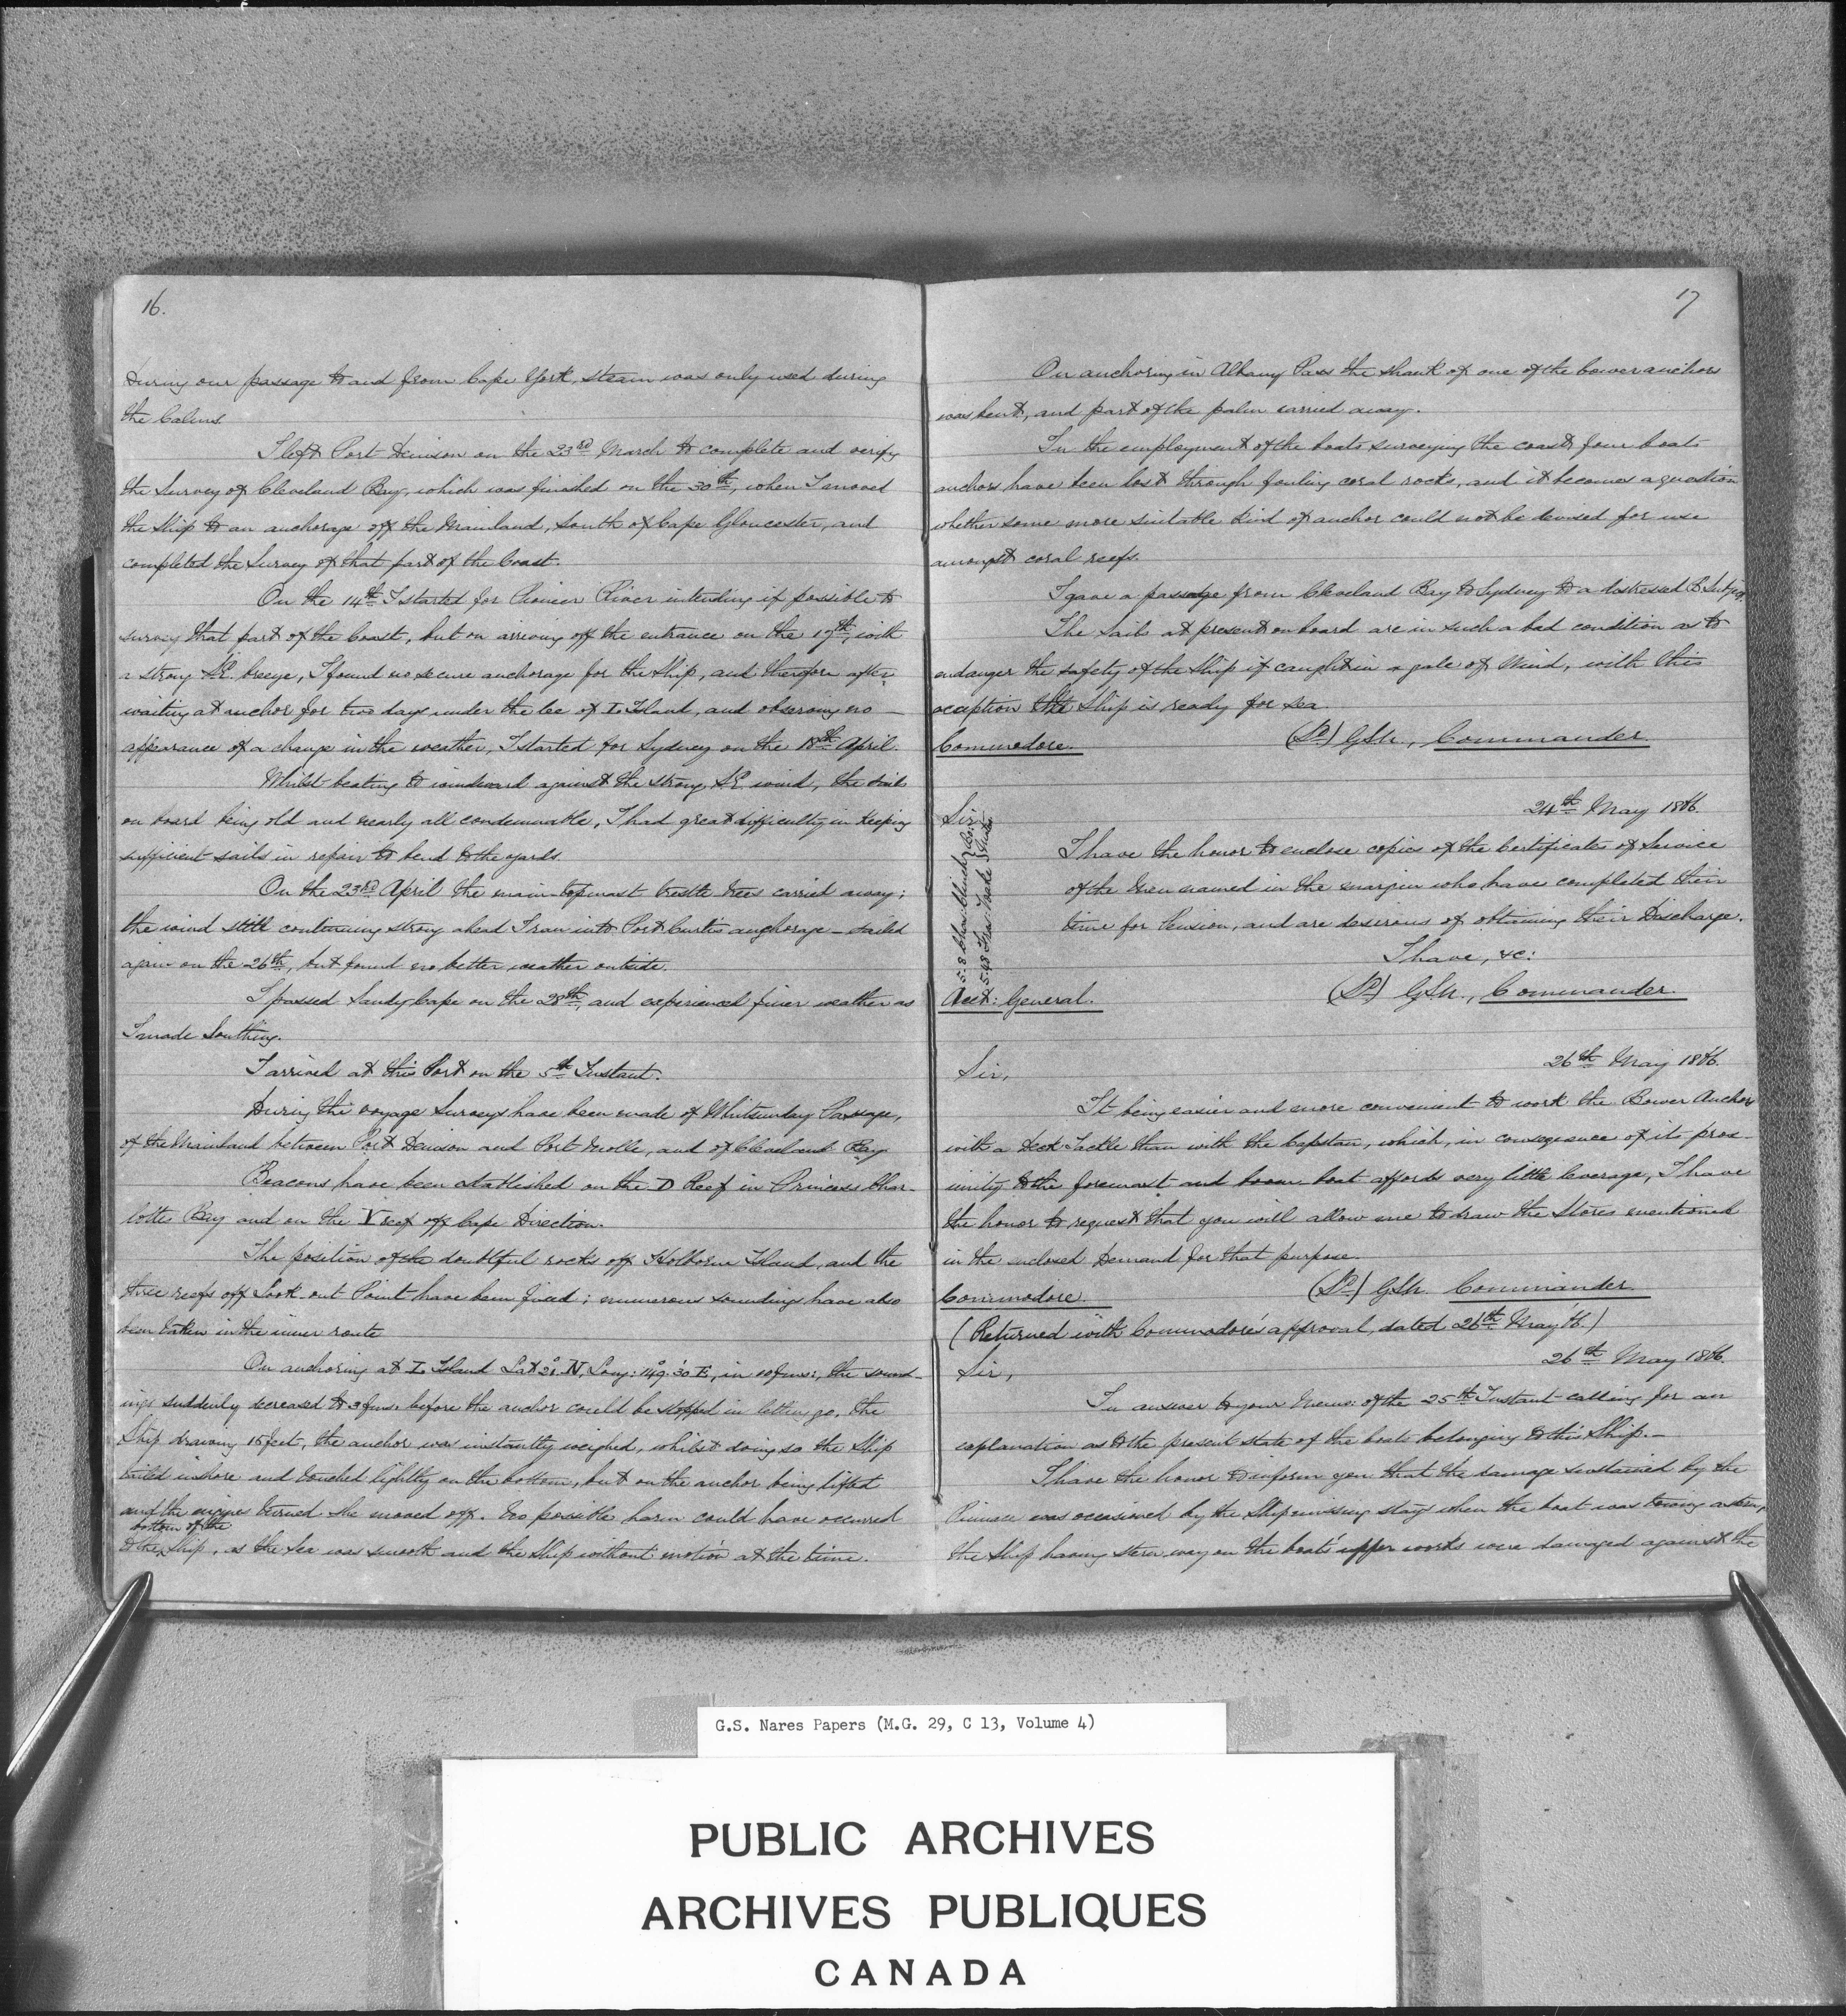 16.
During our passage to and from Cape York, steam was only used during
the Calms.
I left Port Denison on the 23rd March to complete and verify
the Survey of Cleveland Bay, which was finished on the 30th, when I moved
the Ship to an anchorage off the Mainland, South of Cape Gloucester, and
completed the Survey of that part of the Coast.
On the 14th I started for Pioneer River intending if possible to
survey that part of the Coast, but on arriving off the entrance on the 17th, with
a strong S.E. breeze, I found no secure anchorage for the Ship, and therefore after
waiting at anchor for two days under the lee of L Island, and observing no
appearance of a change in the weather, I started for Sydney on the 18th April.
Whilst beating to windward against the strong S.E. wind, the sails
on board being old and nearly all condemnable, I had great difficulty in keeping
sufficient sails in repair to bend to the yards.
On the 23rd April the main-topmast trestle trees carried away;
the wind still continuing strong ahead I ran into Port Curtis anchorage - sailed
again on the 26th, but found no better weather outside.
I passed Sandy Cape on the 28th, and experienced finer weather as
I made Southing.
I arrived at this Port on the 5th Instant.
During the voyage Surveys have been made of Whitsunday Passage,
of the Mainland between Port Denison and Port Molle, and of Cleveland Bay
Beacons have been established on the D Reef in Princess Char-
lottes Bay and on the V reef off Cape Direction.
The position of the doubtful rocks off Holborne Island, and the
three reefs off Look-out Point have been fixed; numerous soundings have also
been taken in the inner route
On anchoring at L Island Lat 21° N, Long: 149°.30' E, in 10 fms:, the sound-
ings suddenly decreased to 3 fms. before the anchor could be stopped in letting go, the
Ship drawing 15 feet, the anchor was instantly weighed, whilst doing so the Ship
tailed inshore and touched lightly on the bottom, but on the anchor being lifted
and the engines turned she moved off. No possible harm could have occurred
bottom of the
to the Ship, as the Sea was smooth and the Ship without motion at the time.
17
On anchoring in Albany Pass the shank of one of the bower anchors
was bent, and part of the palm carried away.
In the employment of the boats surveying the coast four boats
anchors have been lost through fouling coral rocks, and it becomes a question
whether some more suitable kind of anchor could not be devised for use
amongst coral reefs.
I gave a passage from Cleveland Bay to Sydney to a distressed B. Subject.
The Sails at present onboard are in such a bad condition as to
endanger the safety of the Ship if caught in a gale of Wind, with this
exception the Ship is ready for sea.
Commodore. (Sd) GSN., Commander.
24th May 1866.
Sir,
I have the honor to enclose copies of the Certificates of Service
of the Men named in the margin who have completed their
time for Pension, and are desirous of obtaining their Discharge.
I have, &c:
Acct: General. (Sd) GSN., Commander.
26th May 1866.
Sir,
It being easier and more convenient to work the Bower Anchor
with a Deck Tackle than with the Capstan, which, in consequence of its prox-
imity to the foremast and boom boat affords very little leverage, I have
the honor to request that you will allow me to draw the Stores mentioned
in the enclosed Demand for that purpose.
Commodore. (Sd) GSN. Commander.
(Returned with Commodore's approval, dated 26th May '66.)
26th May 1866.
Sir,
In answer to your Memo: of the 25th Instant calling for an
explanation as to the present state of the boats belonging to this Ship.-
I have the honor to inform you that the damage sustained by the
Pinnace was occasioned by the Ship missing stays when the boat was towing astern,
the Ship having stern way on the boats upper works were damaged against the
G.S. Nares Papers (M.G. 29, C 13, Volume 4)
PUBLIC ARCHIVES
ARCHIVES PUBLIQUES
CANADA